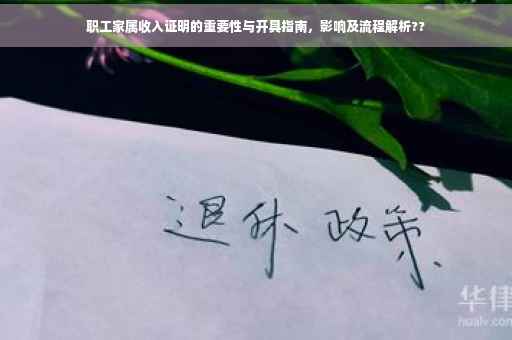 职工家属收入证明的重要性与开具指南，影响及流程解析??
退休 政策
华律
hualv.com